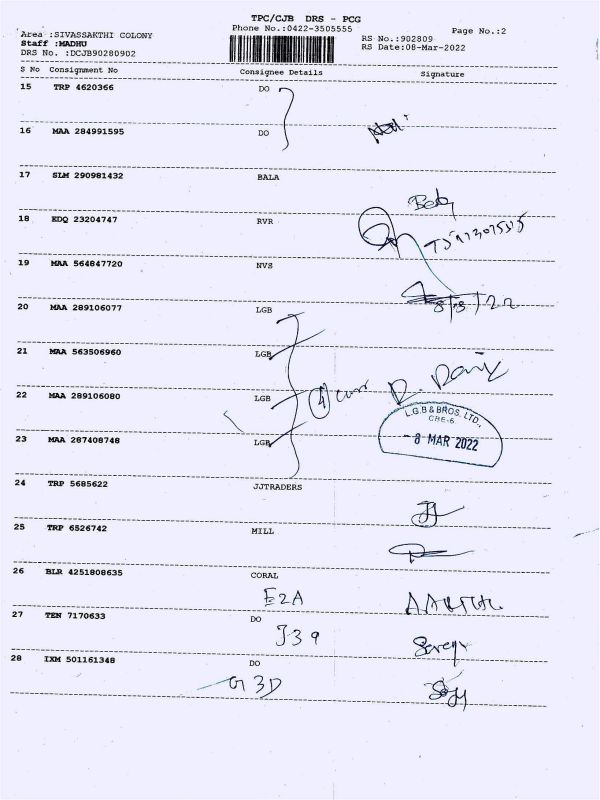 TPC/CJB DRS - PCG
Phone No.:0422-3505555
Page No.:2
Area :SIVASSAKTHI COLONY
Staff :MADHU
DRS No. :DCJB90280902
RS No.:902809
RS Date:08-Mar-2022
S No Consignment No Consignee Details Signature
15 TRP 4620366 DO
16 MAA 284991595 DO
17 SLM 290981432 BALA
18 EDQ 23204747 RVR
19 MAA 564847720 NVS
8/3/22
20 MAA 289106077 LGB
21 MAA 563506960 LGB
22 MAA 289106080 LGB
4
L.G.B & BROS. LTD.,
CBE-6
- 8 MAR 2022
23 MAA 287408748 LGB
24 TRP 5685622 JJTRADERS
25 TRP 6526742 MILL
26 BLR 4251808635 CORAL
E2A
27 TEN 7170633 DO
J39
28 IXM 501161348 DO
G3D